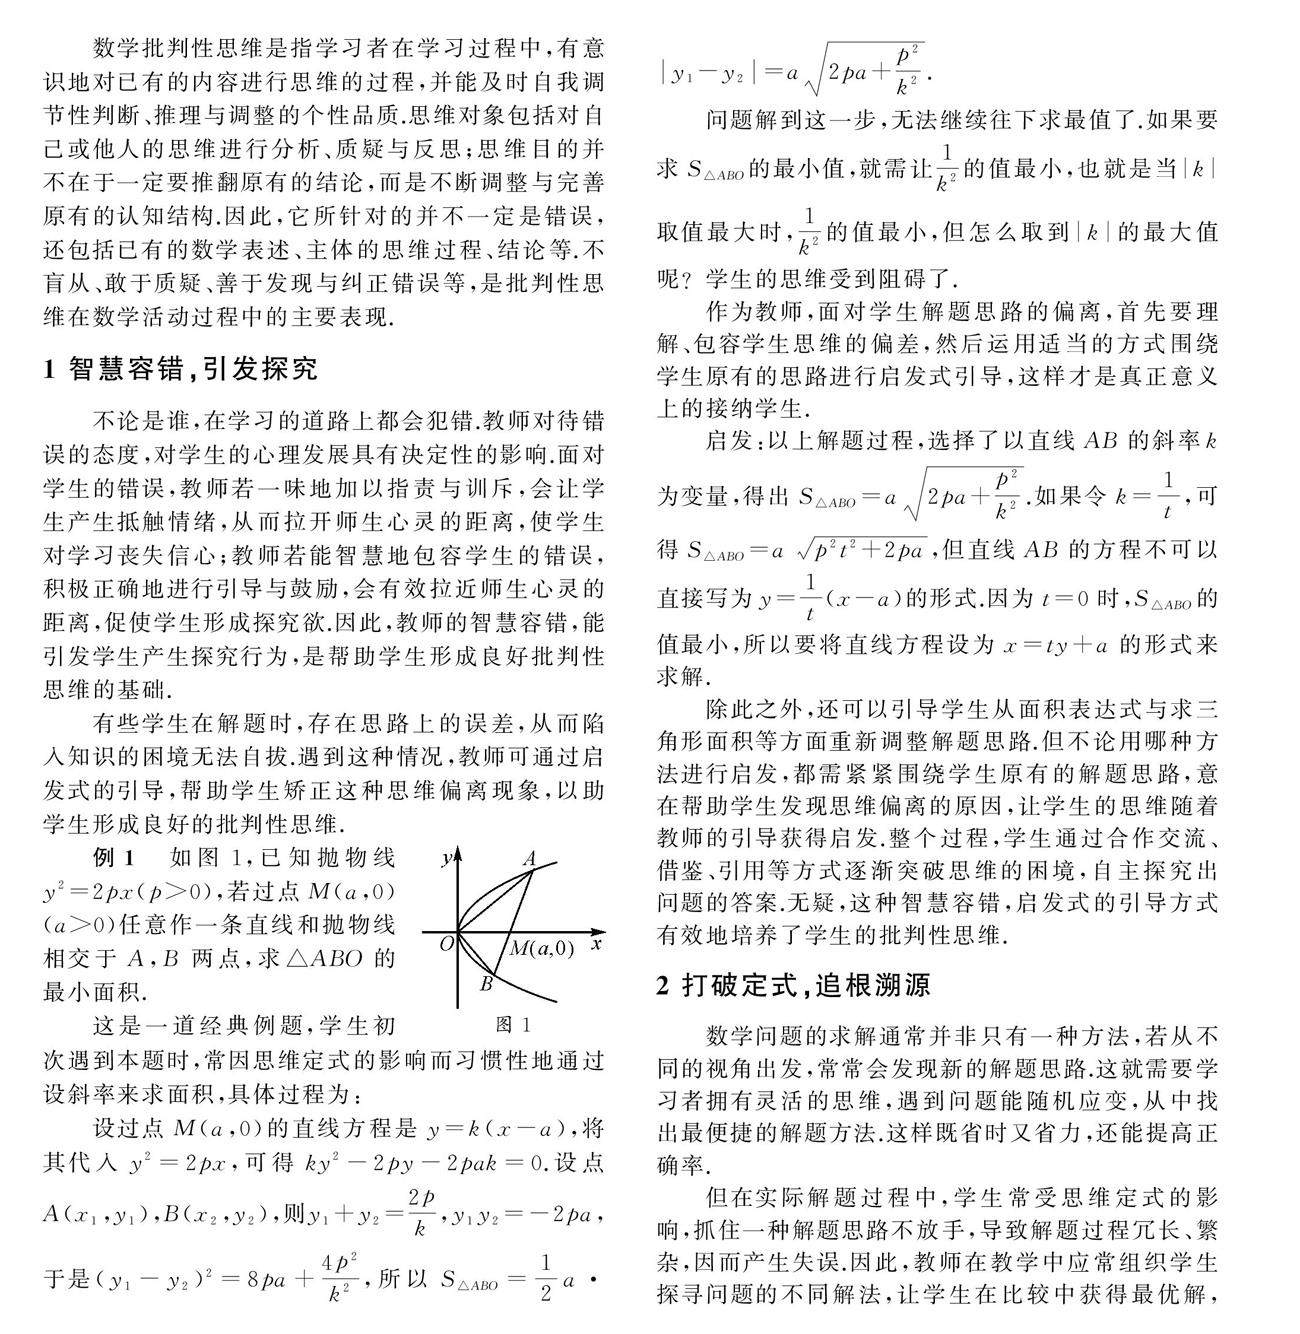 数学批判性思维是指学习者在学习过程中,有意
识地对已有的内容进行思维的过程,并能及时自我调
节性判断、推理与调整的个性品质.思维对象包括对自
己或他人的思维进行分析、质疑与反思;思维目的并
不在于一定要推翻原有的结论,而是不断调整与完善
原有的认知结构.因此,它所针对的并不一定是错误,
还包括已有的数学表述、主体的思维过程、结论等.不
盲从、敢于质疑、善于发现与纠正错误等,是批判性思
维在数学活动过程中的主要表现.
1 智慧容错,引发探究
不论是谁,在学习的道路上都会犯错.教师对待错
误的态度,对学生的心理发展具有决定性的影响.面对
学生的错误,教师若一味地加以指责与训斥,会让学
生产生抵触情绪,从而拉开师生心灵的距离,使学生
对学习丧失信心;教师若能智慧地包容学生的错误,
积极正确地进行引导与鼓励,会有效拉近师生心灵的
距离,促使学生形成探究欲.因此,教师的智慧容错,能
引发学生产生探究行为,是帮助学生形成良好批判性
思维的基础.
有些学生在解题时,存在思路上的误差,从而陷
入知识的困境无法自拔.遇到这种情况,教师可通过启
发式的引导,帮助学生矫正这种思维偏离现象,以助
学生形成良好的批判性思维.
例1 如图 1,已知抛物线
y²=2px(p>0),若过点 M(a,0)
(a>0)任意作一条直线和抛物线
相交于 A,B 两点,求△ABO 的
最小面积.
y
A
O
M(a,0)
x
B
图 1
这是一道经典例题,学生初
次遇到本题时,常因思维定式的影响而习惯性地通过
设斜率来求面积,具体过程为:
设过点 M(a,0)的直线方程是 y=k(x-a),将
其代入 y²=2px,可得 ky²-2py-2pak=0.设点
A(x₁,y₁),B(x₂,y₂),则y₁+y₂=2p/k,y₁y₂=-2pa,
于是(y₁-y₂)²=8pa+4p²/k²,所以 S△ABO=1/2 a·
|y₁-y₂|=a√(2pa+p²/k²).
问题解到这一步,无法继续往下求最值了.如果要
求 S△ABO的最小值,就需让1/k²的值最小,也就是当|k|
取值最大时,1/k²的值最小,但怎么取到|k|的最大值
呢? 学生的思维受到阻碍了.
作为教师,面对学生解题思路的偏离,首先要理
解、包容学生思维的偏差,然后运用适当的方式围绕
学生原有的思路进行启发式引导,这样才是真正意义
上的接纳学生.
启发:以上解题过程,选择了以直线 AB 的斜率k
为变量,得出 S△ABO=a√(2pa+p²/k²).如果令 k=1/t,可
得 S△ABO=a√(p²t²+2pa),但直线 AB 的方程不可以
直接写为 y=1/t(x-a)的形式.因为 t=0 时,S△ABO的
值最小,所以要将直线方程设为 x=ty+a 的形式来
求解.
除此之外,还可以引导学生从面积表达式与求三
角形面积等方面重新调整解题思路.但不论用哪种方
法进行启发,都需紧紧围绕学生原有的解题思路,意
在帮助学生发现思维偏离的原因,让学生的思维随着
教师的引导获得启发.整个过程,学生通过合作交流、
借鉴、引用等方式逐渐突破思维的困境,自主探究出
问题的答案.无疑,这种智慧容错,启发式的引导方式
有效地培养了学生的批判性思维.
2 打破定式,追根溯源
数学问题的求解通常并非只有一种方法,若从不
同的视角出发,常常会发现新的解题思路.这就需要学
习者拥有灵活的思维,遇到问题能随机应变,从中找
出最便捷的解题方法.这样既省时又省力,还能提高正
确率.
但在实际解题过程中,学生常受思维定式的影
响,抓住一种解题思路不放手,导致解题过程冗长、繁
杂,因而产生失误.因此,教师在教学中应常组织学生
探寻问题的不同解法,让学生在比较中获得最优解,